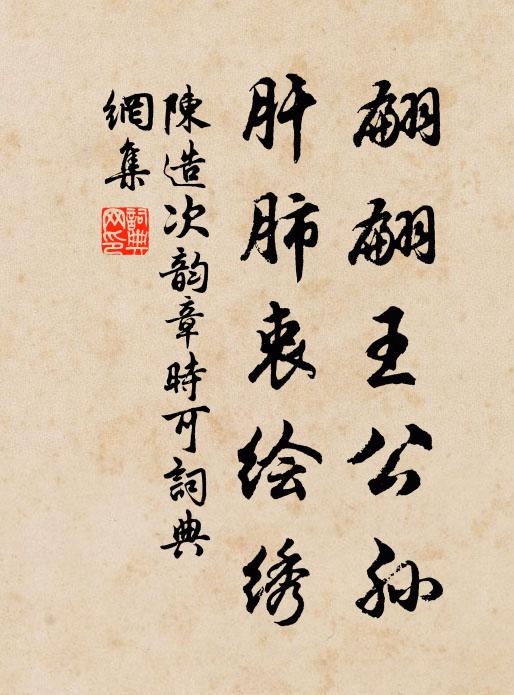 翩翩王公孙
肝肺衷绘绣
陳造次韵章時可詞典
網集
詞典网印